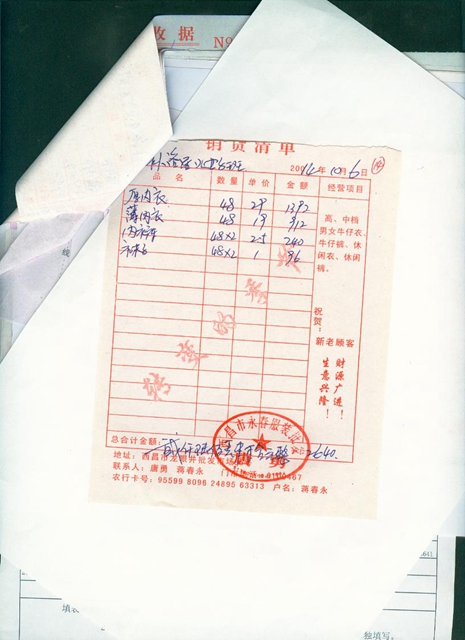 收据 No
销货清单
2014年10月6日
品名 数量 单价 金额 经营项目
厚内衣 48 29 1392
薄内衣 48 19 912
内裤 48×2 2.5 240
袜子 48×2 1 96
高、中档
男女牛仔衣、
牛仔裤、休
闲衣、休闲
裤。
祝贺:
新老顾客
生意兴隆!
财源广进!
总合计金额: 2640.
地址:西昌市龙眼井批发市场
联系人:唐勇 蒋春永
农行卡号:95599 8096 24895 63313 户名:蒋春永
西昌市永春服装批发
线
填
独填写。